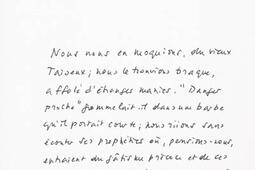 Nous nous en moquions, du vieux
Taseux ; nous le trouvions braque,
affolé d'étranges manies. "Danger
proche" grommelait-il dans une barbe
qu'il portait courte ; nous riions sans
écouter ses prophéties où, pensions-nous,
entraient du gâtisme précoce et de ces